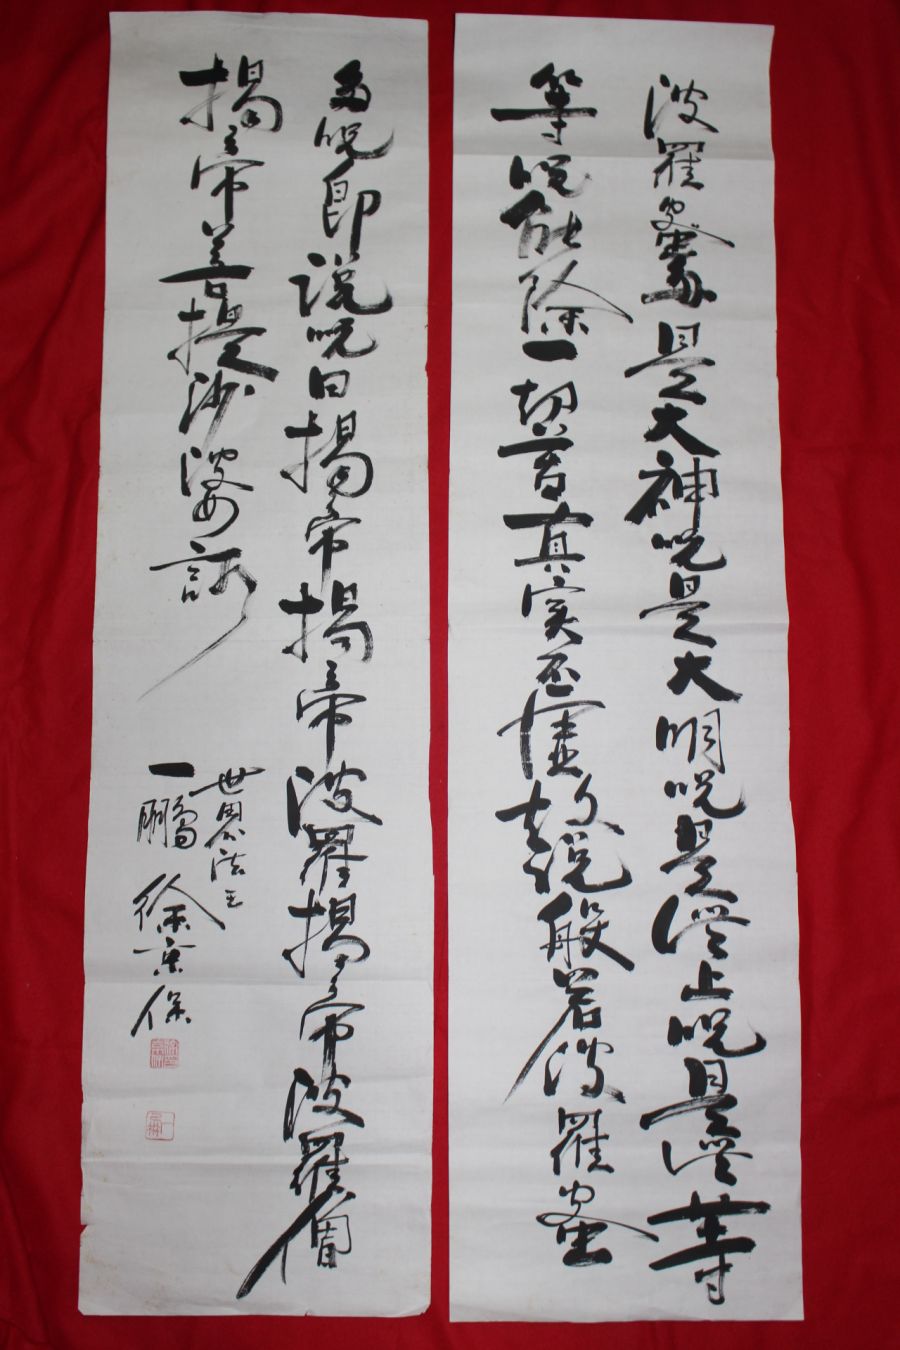 波羅蜜多是大神呪是大明呪是無上呪是無等
等呪能除一切苦真实不虛故說般若波羅蜜
多呪即說呪曰揭帝揭帝波羅揭帝波羅僧
揭帝菩提沙婆訶
世界法王
一鵬 徐京保